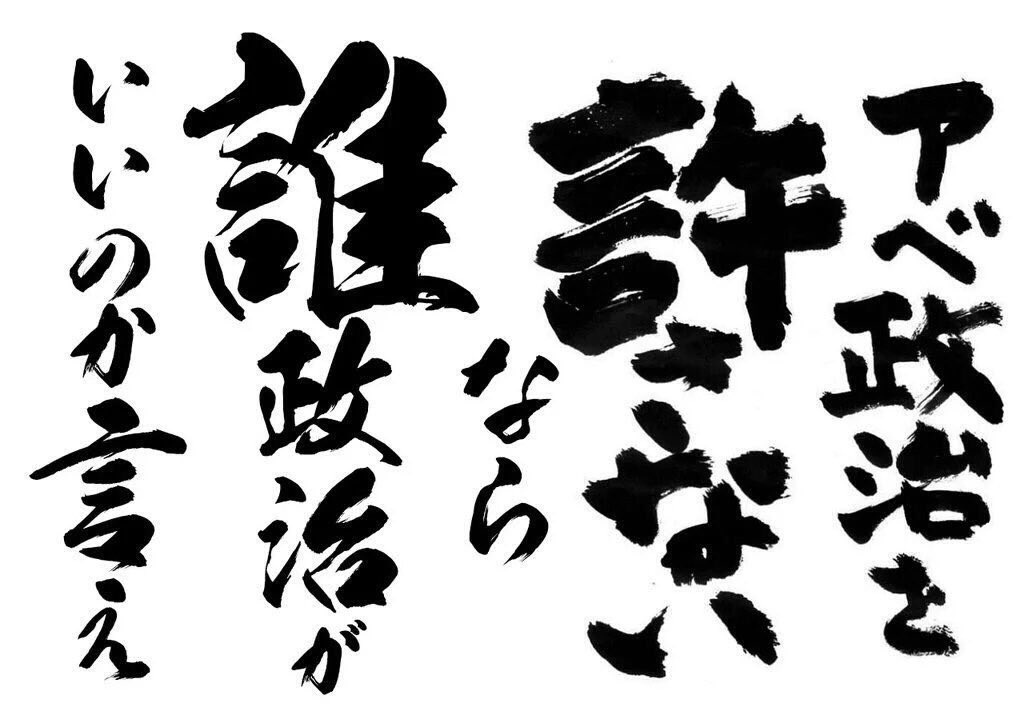 アベ政治を
許さない
なら
誰政治が
いいのか言え